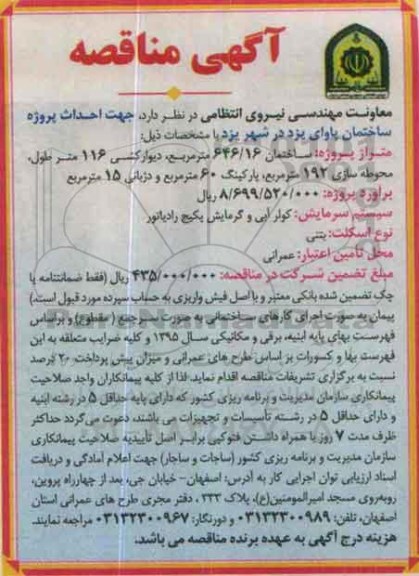 آگهی مناقصه
معاونت مهندسی نیروی انتظامی در نظر دارد، جهت احداث پروژه
ساختمان پاوای یزد در شهر یزد با مشخصات ذیل:
متراژ پروژه: ساختمان ۶۴۶/۱۶ مترمربع، دیوارکشی ۱۱۶ متر طول،
محوطه سازی ۱۹۲ مترمربع، پارکینگ ۶۰ مترمربع و دژبانی ۱۵ مترمربع
برآورد پروژه: ۸/۶۹۹/۵۲۰/۰۰۰ ریال
سیستم سرمایش: کولر آبی و گرمایش پکیج رادیاتور
نوع اسکلت: بتنی
محل تأمین اعتبار: عمرانی
مبلغ تضمین شرکت در مناقصه: ۴۳۵/۰۰۰/۰۰۰ ریال (فقط ضمانتنامه یا
چک تضمین شده بانکی معتبر و یا اصل فیش واریزی به حساب سپرده مورد قبول است.)
پیمان به صورت اجرای کارهای ساختمانی به صورت سرجمع (مقطوع) و براساس
فهرست بهای پایه ابنیه، برقی و مکانیکی سال ۱۳۹۵ و کلیه ضرایب متعلقه به این
فهرست بها و کسورات بر اساس طرح های عمرانی و میزان پیش پرداخت ۲۰ درصد
نسبت به برگزاری تشریفات مناقصه اقدام نماید. لذا از کلیه پیمانکاران واجد صلاحیت
پیمانکاری سازمان مدیریت و برنامه ریزی کشور که دارای پایه حداقل ۵ در رشته ابنیه
و دارای حداقل ۵ در رشته تأسیسات و تجهیزات می باشند، دعوت می گردد حداکثر
ظرف مدت ۷ روز با همراه داشتن فتوکپی برابر اصل تأییدیه صلاحیت پیمانکاری
سازمان مدیریت و برنامه ریزی کشور (ساجات و ساجار) جهت اعلام آمادگی و دریافت
اسناد ارزیابی توان اجرایی کار به آدرس: اصفهان- خیابان جی، بعد از چهارراه پروین،
روبه‌روی مسجد امیرالمومنین(ع)، پلاک ۲۳۲، دفتر مجری طرح های عمرانی استان
اصفهان، تلفن: ۰۳۱۳۲۳۰۰۹۸۹ و دورنگار: ۰۳۱۳۲۳۰۰۹۶۷ مراجعه نمایند.
هزینه درج آگهی به عهده برنده مناقصه می باشد.